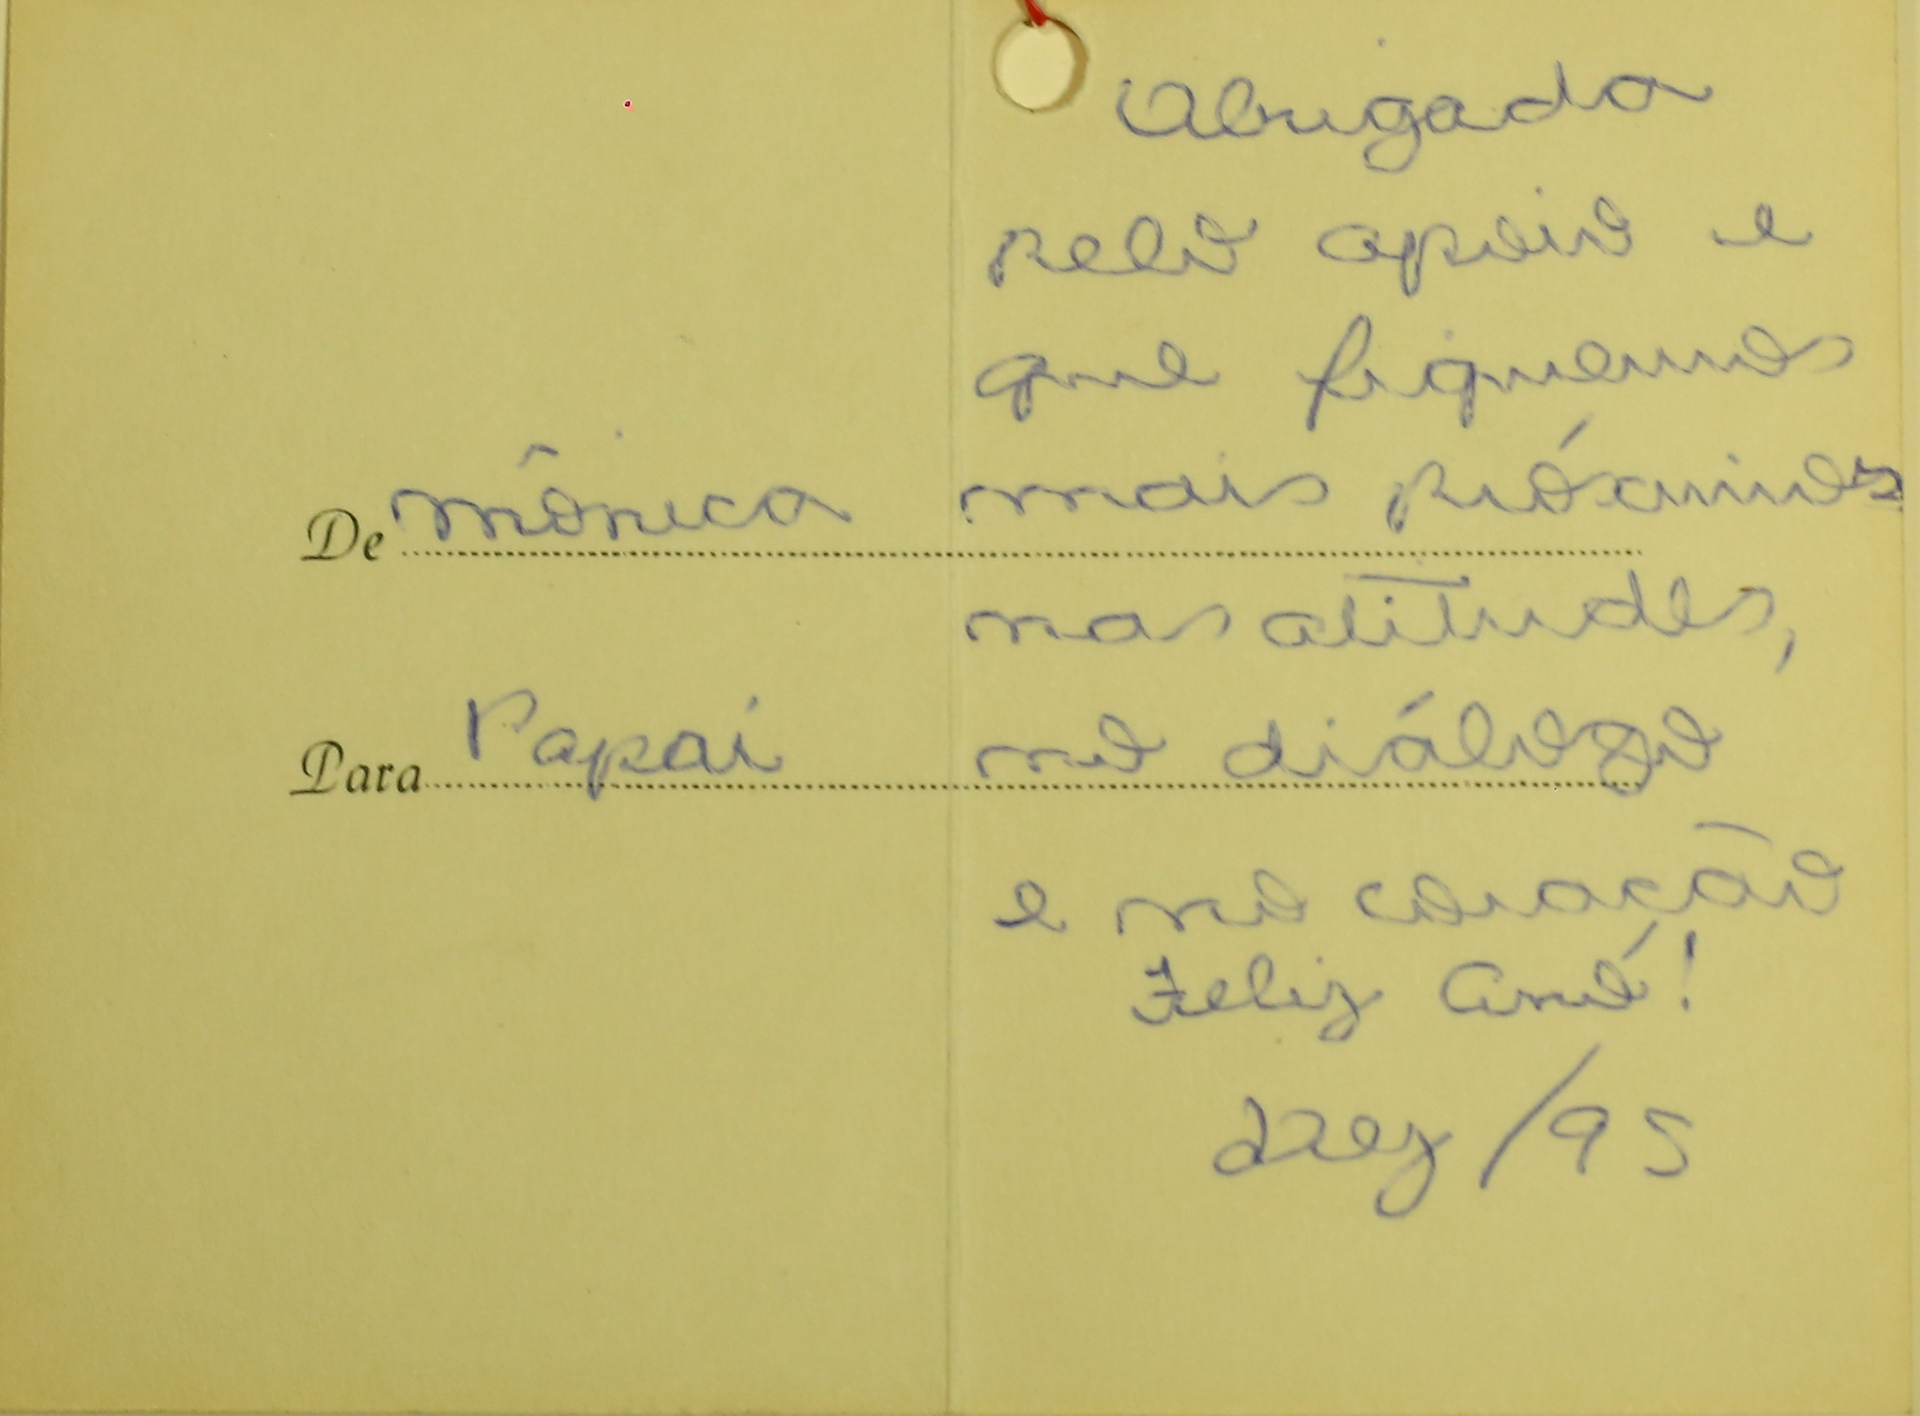 De Mônica
Para Papai
Obrigada
pelo apoio e
que fiquemos
mais próximos
nas atitudes,
no diálogo
e no coração
Feliz Ano!
dez/95